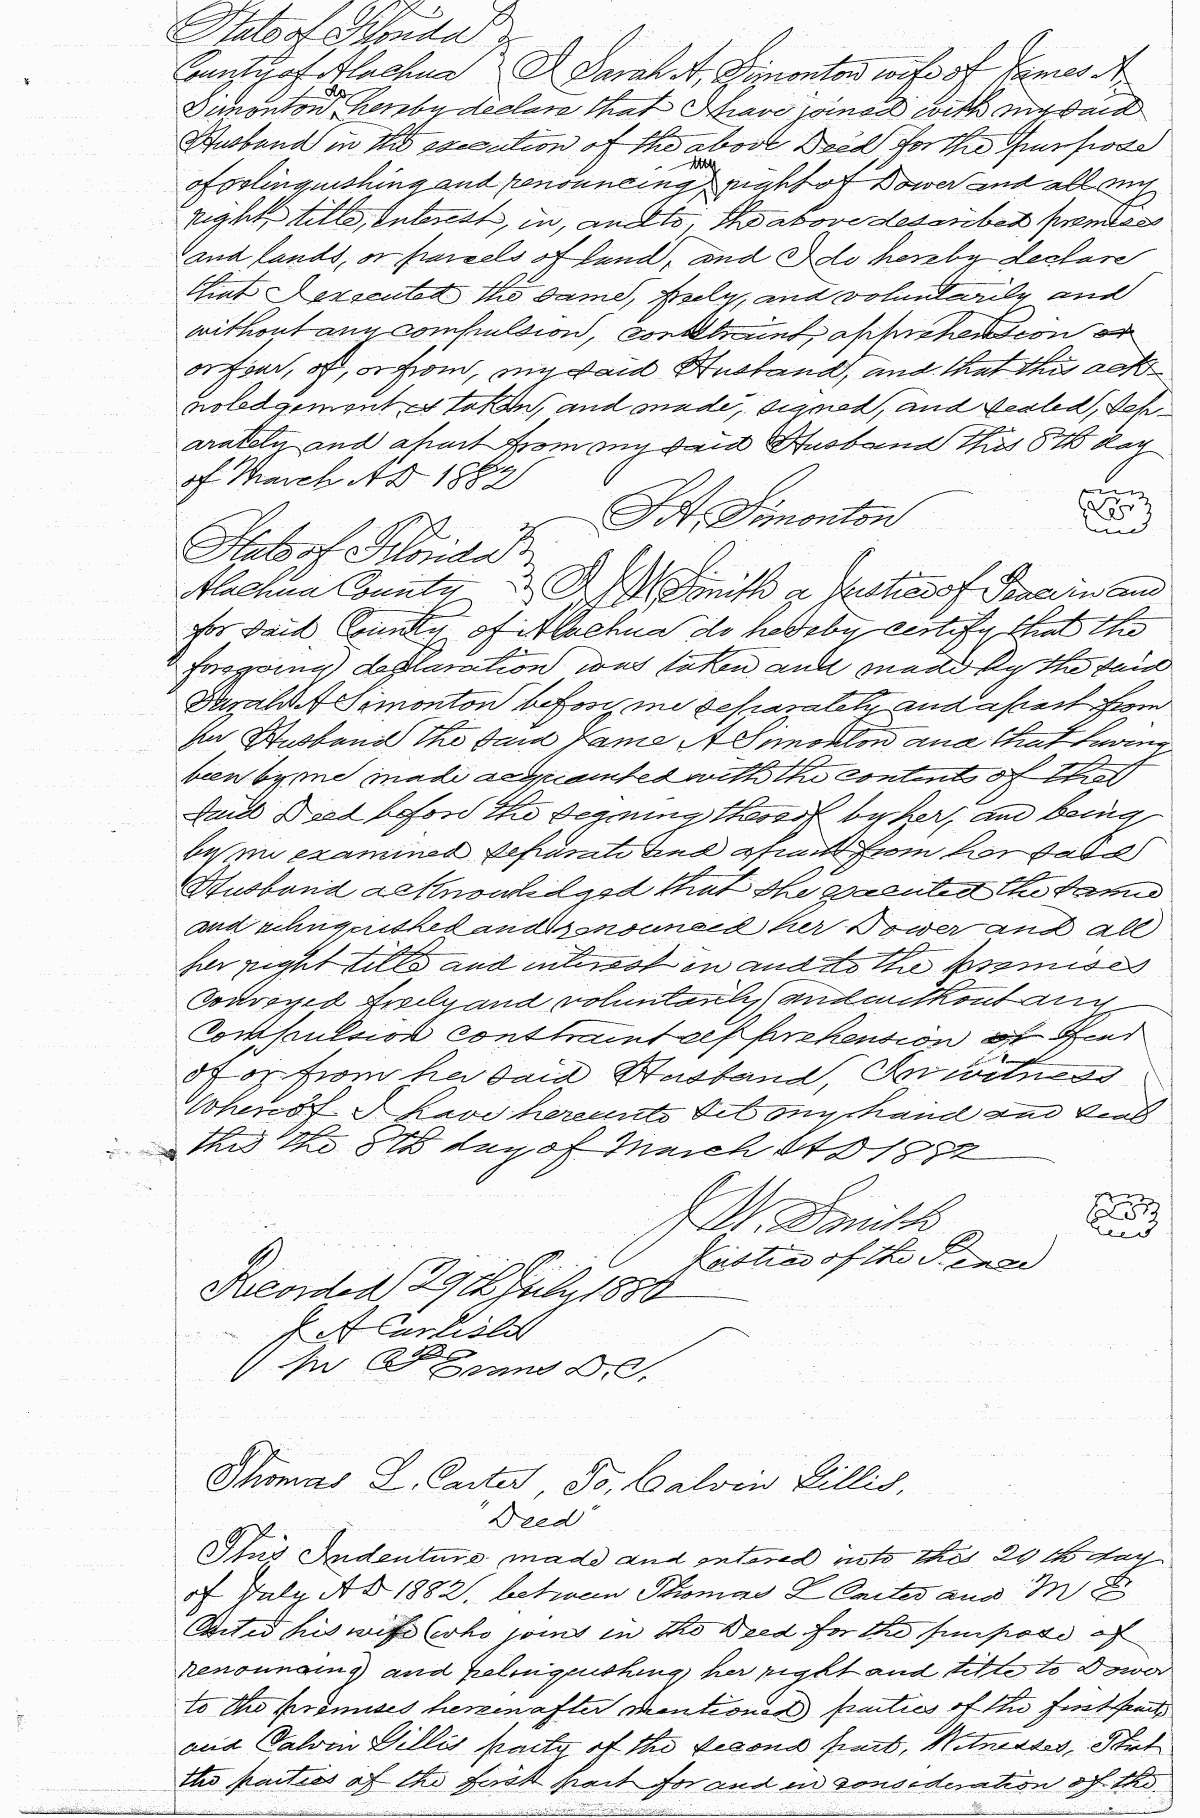 State of Florida
County of Alachua I Sarah A, Simonton wife of James A
Simonton, do hereby declare that I have joined with my said
Husband in the execution of the above Deed for the purpose
of relinquishing and renouncing my right of Dower and all my
right, title, interest, in, and to, the above described premises
and lands, or parcels of land, and I do hereby declare
that I executed the same, freely, and voluntarily and
without any compulsion, constraint, apprehension or
or fear, of, or from, my said Husband, and that this ack-
noledgement is taken, and made, signed, and sealed, sep-
arately and apart from my said Husband this 8th day
of March AD 1882
S A, Simonton LS
State of Florida
Alachua County I J W, Smith a Justice of Peace in and
for said County of Alachua do hereby certify that the
foregoing declaration was taken and made by the said
Sarah A Simonton before me separately and apart from
her Husband the said Jame A Simonton and that having
been by me made acquainted with the contents of the
said Deed before the signing thereof by her, and being
by me examined separate and apart from her said
Husband acknowledged that she executed the same
and relinquished and renounced her Dower and all
her right title and interest in and to the premises
conveyed freely and voluntarily and without any
Compulsion constraint apprehension or fear
of or from her said Husband, In witness
Whereof I have hereunto set my hand and seal
this the 8th day of March AD 1882
J W. Smith LS
Justice of the Peace
Recorded 29th July 1882
J A Carlisle
per Evans D.C.
Thomas L. Carter, To, Calvin Gillis,
"Deed"
This Indenture made and entered into this 20th day
of July AD 1882, between Thomas L Carter and M E
Carter his wife (who joins in the Deed for the purpose of
renouncing) and relinquishing her right and title to Dower
to the premises hereinafter mentioned) parties of the first part
and Calvin Gillis party of the second part, Witnesses, That
the parties of the first part for and in consideration of the